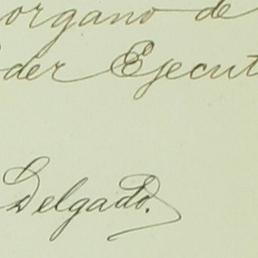 organo de
der Ejecut
Delgado.